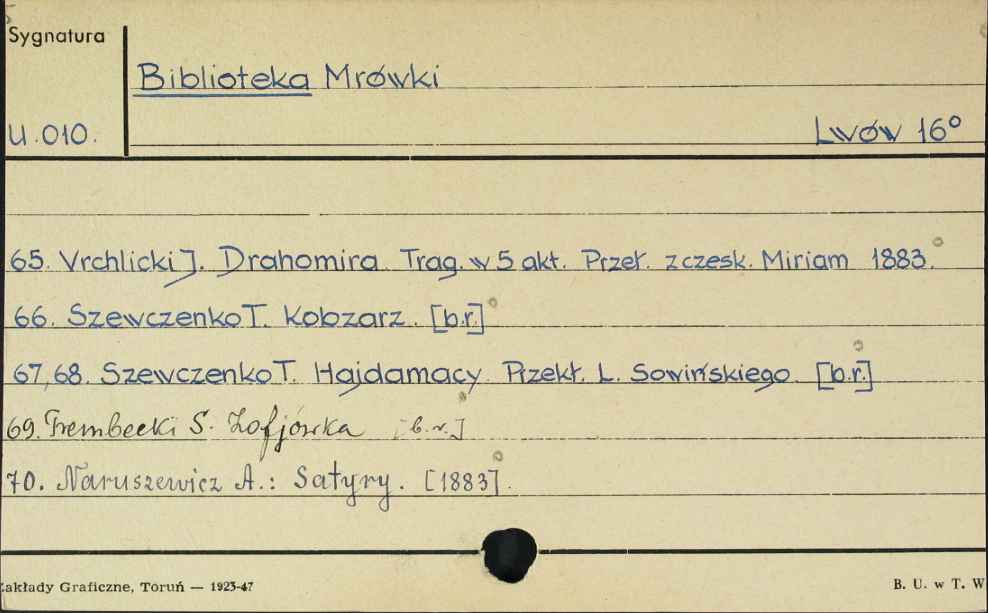 Sygnatura
Biblioteka Mrówki
U.010. Lwów 16°
65. Vrchlicki J. Drahomira Trag. w 5 akt. Przeł. z czesk. Miriam 1883.
66. Szewczenko T. Kobzarz. [b.r.]
67,68. Szewczenko T. Hajdamacy. Przekł. L. Sowińskiego. [b.r.]
69. Trembecki S. Zofjówka [b.r.]
70. Naruszewicz A.: Satyry. [1883].
Zakłady Graficzne, Toruń — 1923-47 B. U. w T. W